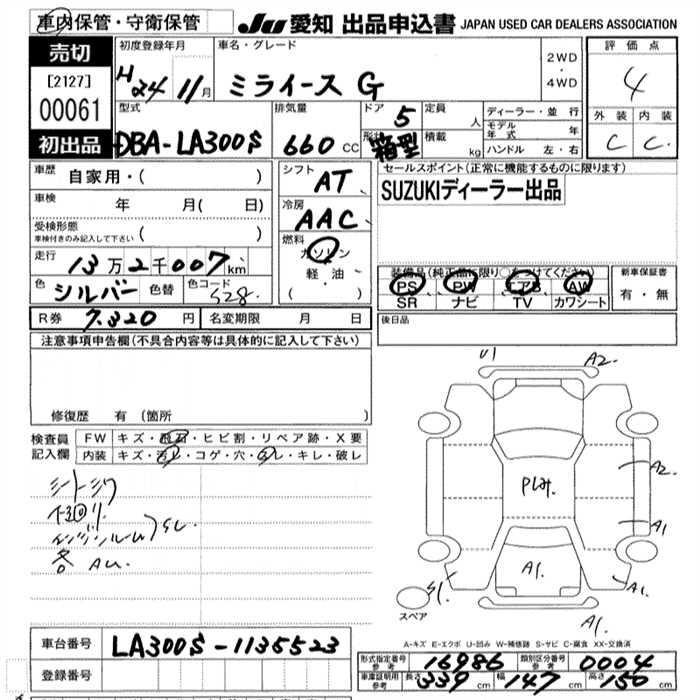 車内保管・守衛保管
JU 愛知 出品申込書 JAPAN USED CAR DEALERS ASSOCIATION
売切
[2127]
00061
初出品
初度登録年月
H24 11月
車名・グレード
ミライース G
2WD
・
4WD
評価点
4
外装 内装
C C
型式
DBA-LA300S
排気量
660 CC
ドア 5
形状 箱型
定員 人
積載 kg
ディーラー・並行
モデル年式 年
ハンドル 左・右
車歴 自家用・( )
車検 年 月( 日)
受検形態
車検付きのみ記入して下さい ( )
走行 13万2千007km
色 シルバー 色替 色コード S28
シフト AT
冷房 AAC
燃料
ガソリン
軽油
( )
セールスポイント(正常に機能するものに限ります)
SUZUKIディーラー出品
装備品(純正品に限り○をつけてください)
PS PW エアB AW
SR ナビ TV カワシート
新車保証書
有・無
R券 7.320 円 名変期限 月 日
後日品
注意事項申告欄(不具合内容等は具体的に記入して下さい)
修復歴 有 (箇所
検査員記入欄
FW キズ・飛石・ヒビ割・リペア跡・X要
内装 キズ・汚レ・コゲ・穴・スレ・キレ・破レ
シートシワ
下回り
エンジンルーム
各 AU
U1 A2
A2
Pしみ
A1
A1.
S1. A1
A1
スペア
A-キズ E-エクボ U-凹み W-補修跡 S-サビ C-腐食 XX-交換済
車台番号 LA300S-1135523
登録番号
形式指定番号 参考 16986 類別区分番号 参考 0004
車庫証明用 参考 長さ 339 幅 147 高さ 150 cm